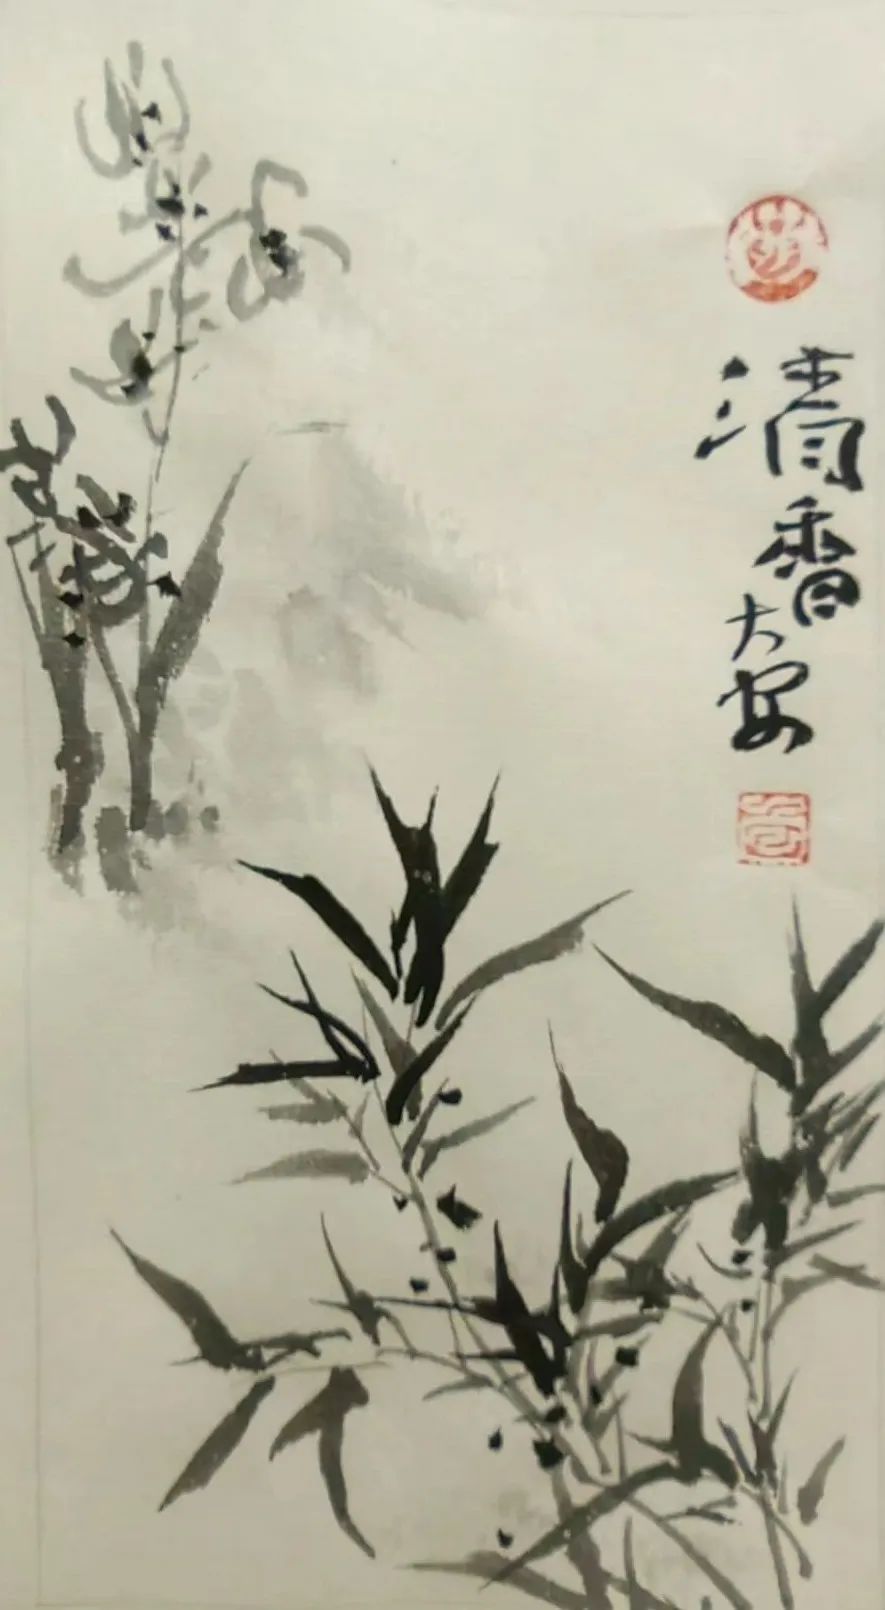 清香
大安